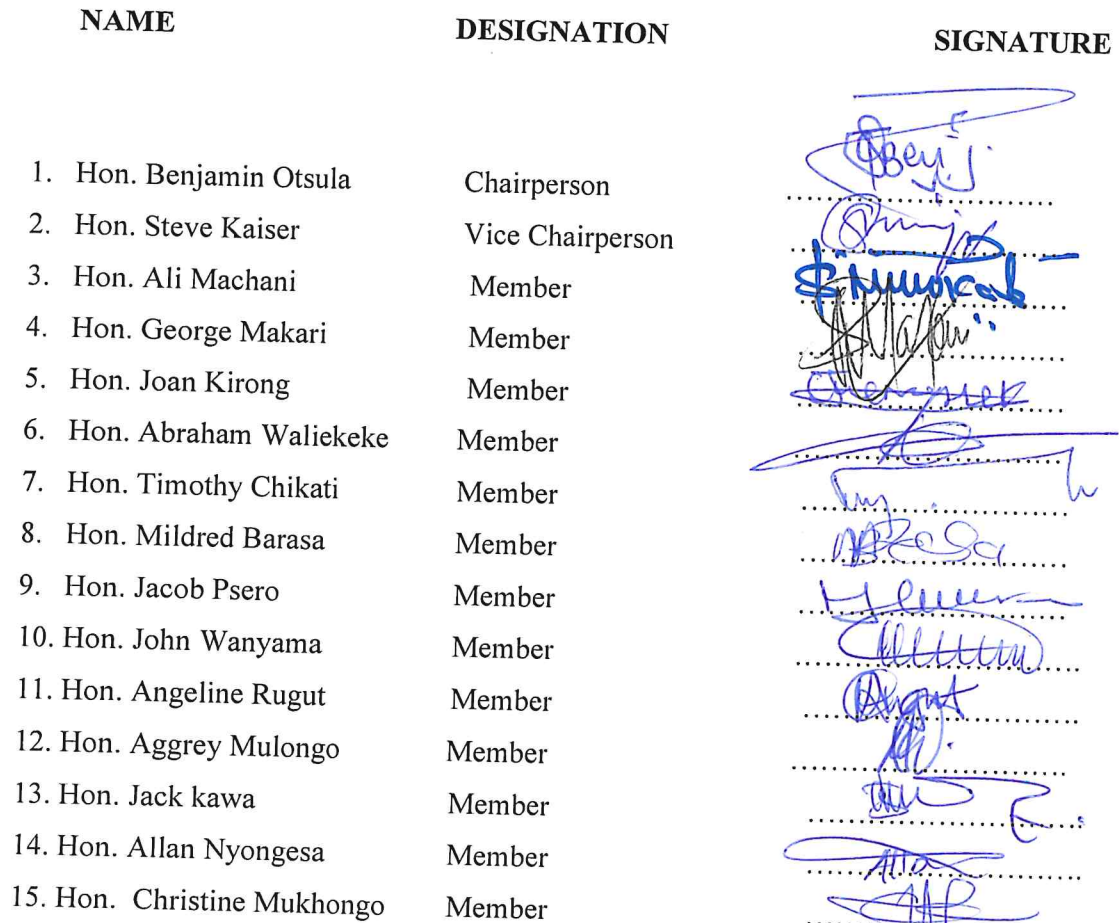 NAME DESIGNATION SIGNATURE
1. Hon. Benjamin Otsula Chairperson
2. Hon. Steve Kaiser Vice Chairperson
3. Hon. Ali Machani Member
4. Hon. George Makari Member
5. Hon. Joan Kirong Member
6. Hon. Abraham Waliekeke Member
7. Hon. Timothy Chikati Member
8. Hon. Mildred Barasa Member
9. Hon. Jacob Psero Member
10. Hon. John Wanyama Member
11. Hon. Angeline Rugut Member
12. Hon. Aggrey Mulongo Member
13. Hon. Jack kawa Member
14. Hon. Allan Nyongesa Member
15. Hon. Christine Mukhongo Member